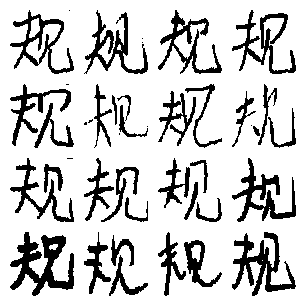 规规规规
规规规规
规规规规
规规规规